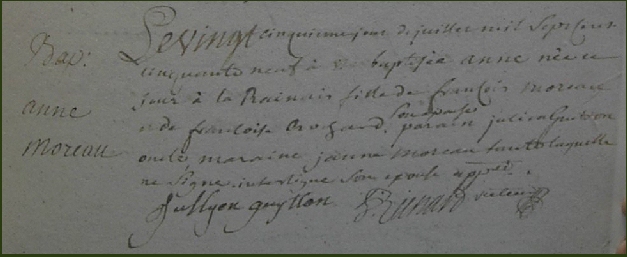 Bap:
anne
moreau
Le vingt cinquieme jour de juillet mil sept cent
cinquante neuf à été baptisée anne née ce
jour à la Rainais fille de françois moreau
et de francoise Brochard son epouse parain julien Guitton
oncle maraine jeanne moreau tante laquelle
ne signe interligne son epouse app
Jullyen guytton P: Renard